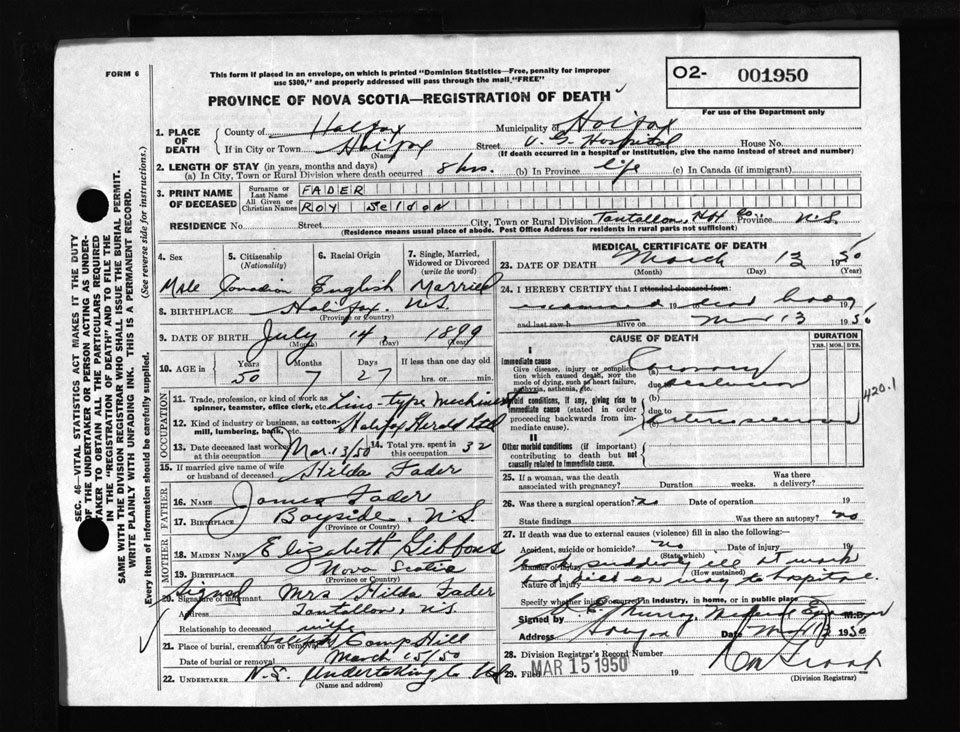 FORM 6
This form if placed in an envelope, on which is printed "Dominion Statistics—Free, penalty for improper
use $300," and properly addressed will pass through the mail "FREE"
O2- 001950
For use of the Department only
PROVINCE OF NOVA SCOTIA—REGISTRATION OF DEATH
1. PLACE OF DEATH County of Halifax Municipality of Halifax
If in City or Town Halifax (Name) Street V. G. Hospital House No.
(If death occurred in a hospital or institution, give the name instead of street and number)
2. LENGTH OF STAY (in years, months and days)
(a) In City, Town or Rural Division where death occurred 8 hrs. (b) In Province life (c) In Canada (if immigrant)
3. PRINT NAME OF DECEASED Surname or Last Name FADER
All Given or Christian Names ROY SeldoN
RESIDENCE No. Street City, Town or Rural Division Tantallon, Hfx Co. Province N.S.
(Residence means usual place of abode. Post Office Address for residents in rural parts not sufficient)
4. Sex 5. Citizenship (Nationality) 6. Racial Origin 7. Single, Married, Widowed or Divorced (write the word)
Male Canadian English Married
8. BIRTHPLACE Halifax. N.S.
(Province or Country)
9. DATE OF BIRTH July 14 1899
(Month) (Day) (Year)
10. AGE in Years Months Days If less than one day old
50 7 27 hrs. or min.
OCCUPATION
11. Trade, profession, or kind of work as spinner, teamster, office clerk, etc. Lino-type Mechinest
12. Kind of industry or business, as cotton-mill, lumbering, bank, etc. Halifax Herald Ltd
13. Date deceased last worked at this occupation Mar. 13/50 14. Total yrs. spent in this occupation 32
15. If married give name of wife or husband of deceased Hilda Fader
FATHER
16. NAME James Fader
17. BIRTHPLACE Bayside. N.S.
(Province or Country)
MOTHER
18. MAIDEN NAME Elizabeth Gibbons
19. BIRTHPLACE Nova Scotia
(Province or Country)
Signed
20. Signature of informant Mrs Hilda Fader
Address Tantallon, N.S.
Relationship to deceased wife
21. Place of burial, cremation or removal Halifax Camp Hill
Date of burial or removal March 15/50
22. UNDERTAKER N.S. Undertaking Co Ltd
(Name and address)
MEDICAL CERTIFICATE OF DEATH
23. DATE OF DEATH March 13 1950
(Month) (Day) (Year)
24. I HEREBY CERTIFY that I attended deceased from
examined 19 dead body
and last saw h alive on Mar 13 1950
CAUSE OF DEATH DURATION
YRS. MOS. DYS.
I
Immediate cause
Give disease, injury or complication which caused death, not the mode of dying, such as heart failure, asphyxia, asthenia, etc.
(a) Coronary
due to occlusion
Morbid conditions, if any, giving rise to immediate cause (stated in order proceeding backwards from immediate cause).
(b)
due to
(c) Arteriosclerosis
420.1
II
Other morbid conditions (if important) contributing to death but not causally related to immediate cause.
25. If a woman, was the death associated with pregnancy? Duration weeks. Was there a delivery?
26. Was there a surgical operation? no Date of operation 19
State findings Was there an autopsy? no
27. If death was due to external causes (violence) fill in also the following:
Accident, suicide or homicide? no Date of injury 19
(State which)
Manner of injury Took suddenly ill at work
(How sustained)
Nature of injury died on way to hospital.
Specify whether injury occurred in industry, in home, or in public place
Signed by Murray, Medical Examiner M.D.
Address Date Mar 13 1950
28. Division Registrar's Record Number
29. Filed MAR 15 1950 19
(Division Registrar)
SEC. 46—VITAL STATISTICS ACT MAKES IT THE DUTY
OF THE UNDERTAKER OR PERSON ACTING AS UNDER-
TAKER TO OBTAIN ALL THE PARTICULARS REQUIRED
IN THE "REGISTRATION OF DEATH" AND TO FILE THE
SAME WITH THE DIVISION REGISTRAR WHO SHALL ISSUE THE BURIAL PERMIT.
WRITE PLAINLY WITH UNFADING INK. THIS IS A PERMANENT RECORD.
Every item of information should be carefully supplied. (See reverse side for instructions.)